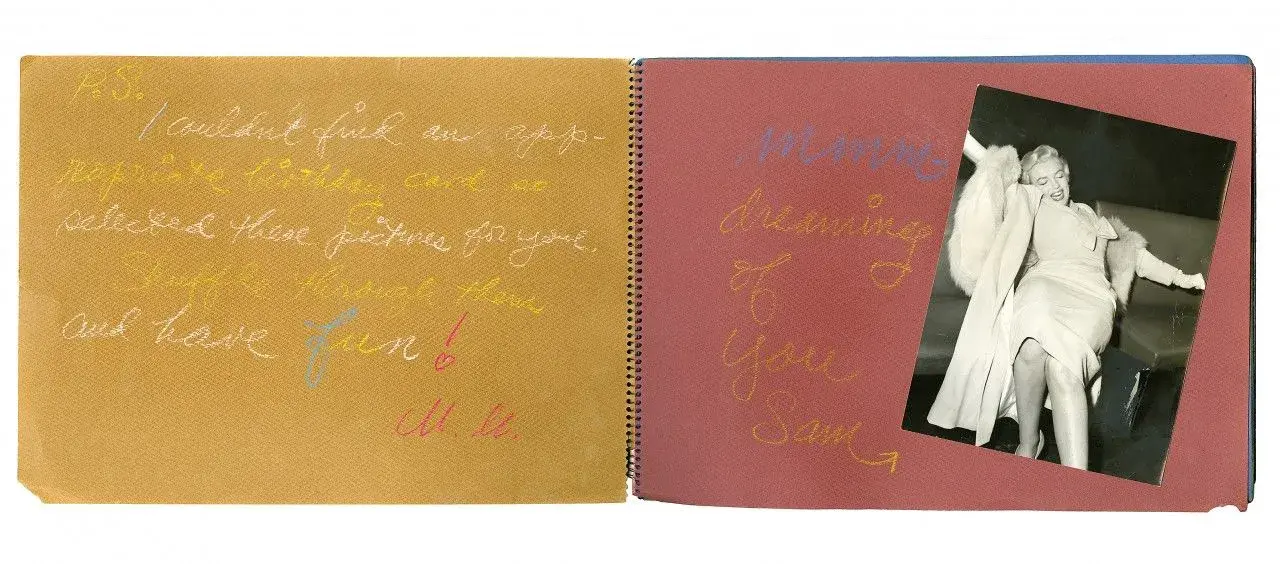 P.S.
I couldn't find an app-
ropriate birthday card so
selected these pictures for you.
Shuffle through them
and have fun!
M. M.
mmm
dreaming
of
you
Sam